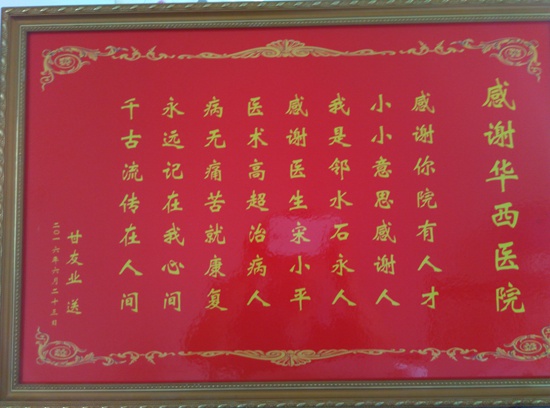 感谢华西医院
感谢你院有人才
小小意思感谢人
我是邻水石永人
感谢医生宋小平
医术高超治病人
病无痛苦就康复
永远记在我心间
千古流传在人间
甘友业 送
二〇一六年六月二十三日